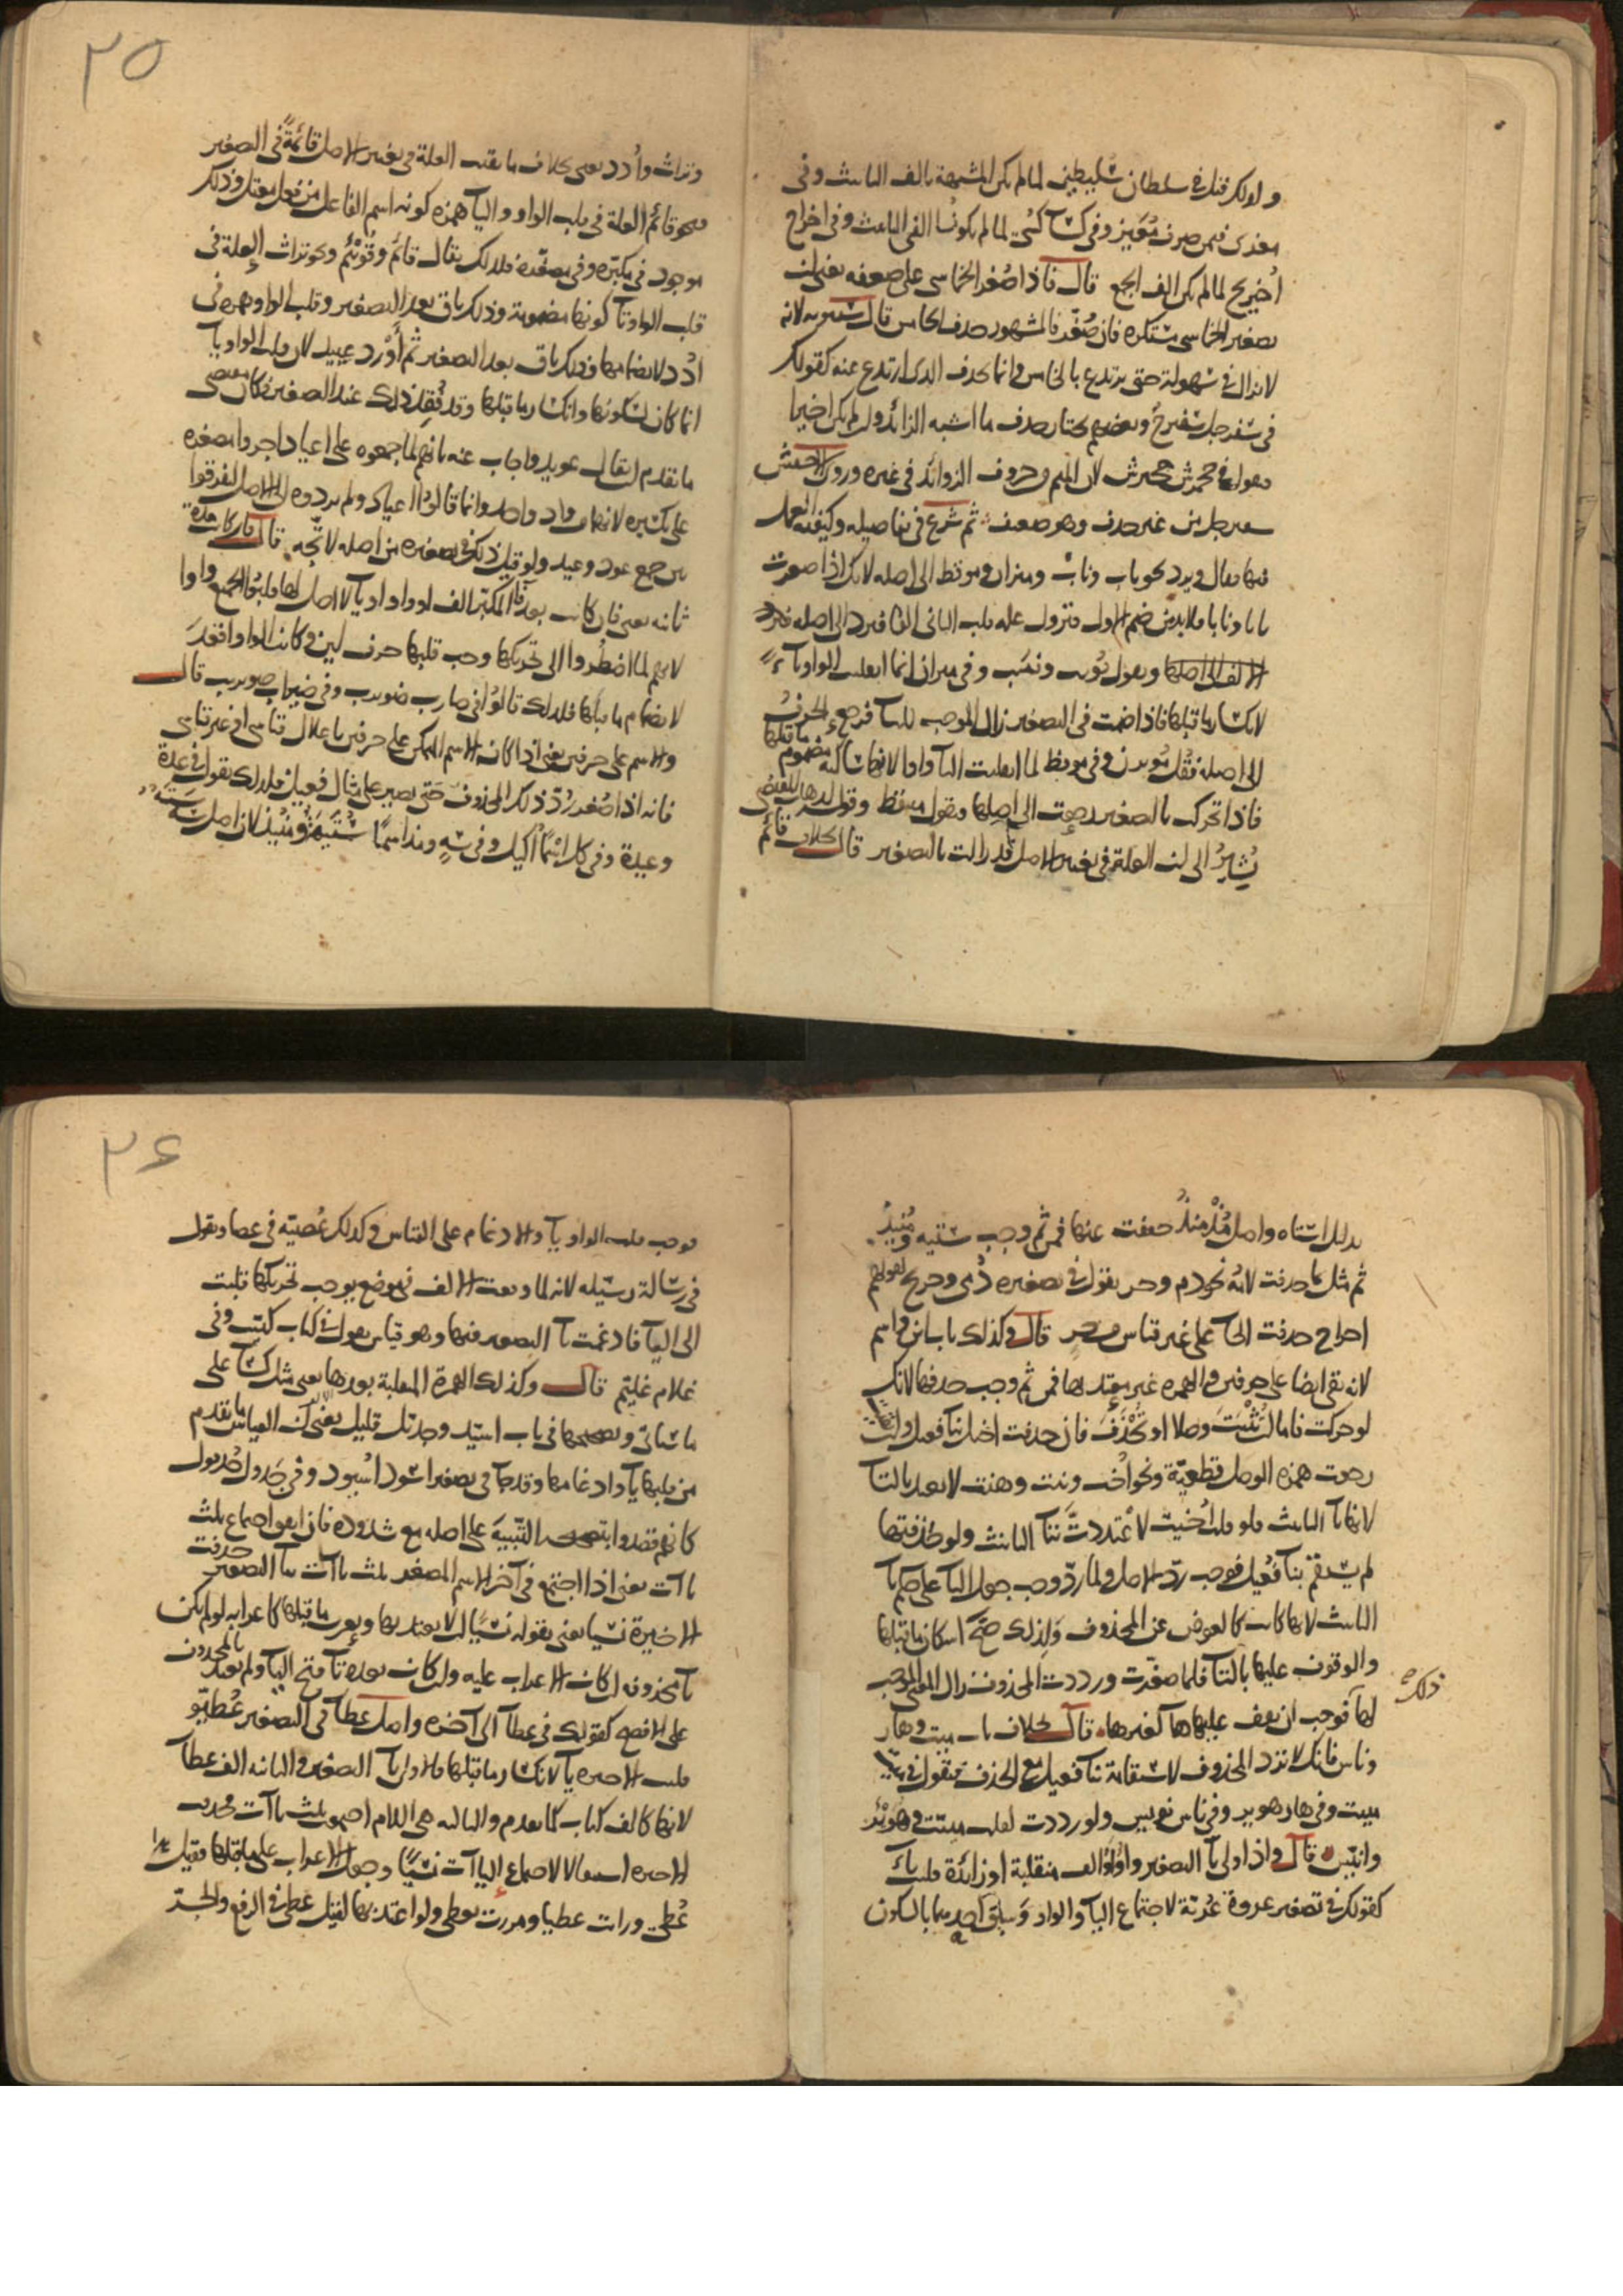 ولذلك قيل في سلطان سليطين لما لم يكن المشبهة بالف التانيث وفي
فيمن صرف وفي لما لم يكونا الفي التانيث وفي اخراج
اخيريج لما لم يكن الف الجمع قال فاذا صغر الخماسي على ضعفه يعني ان
تصغير الخماسي مستكره فان صغر فالمشهور حذف الخامس قال سيبويه لانه
لا يزال في سهولة حتى يرتدع بالخامس وانما يحذف الذي ارتدع عنه كقولك
في سفرجل سفيرج وبعضهم يختار حذف ما اشبه الزائد وان لم يكن اخيرا
فيقول في جحمرش جحيرش لان الميم من حروف الزوائد في غيره وروى الاخفش
سفيرجل من غير حذف وهو ضعيف ثم شرع في تفاصيله وكيفية
فيها فقال ويرد نحو باب وناب وميزان وموقظ الى اصله لانك اذا صغرت
بابا ونابا فلا بد من ضم الاول فتزول علة قلب الثاني الفا فيرد الى اصله فترد
الالف الى اصلها وتقول بويب ونييب وفي ميزان انما انقلبت الواو ياء
لانكسار ما قبلها فاذا ضمت في التصغير زال الموجب للياء فرجع الحرف
الى اصله فقيل مويزن وفي موقظ لما انقلبت الياء واوا لانها ساكنة مضموم ما قبلها
فاذا تحرك بالتصغير رجعت الى اصلها وتقول مييقظ وقوله لذهاب المقتضي
يشير الى ان العلة في تغيير الاصل قد زالت بالتصغير قال بخلاف قائم
٢٥
وتراث وادد يعني بخلاف ما بقيت العلة في تغيير الاصل قائمة في التصغير
نحو قائم العلة في قلب الواو والياء همزة كونه اسم الفاعل من فعل معتل وذلك
موجود في مكبره وفي مصغره فلذلك يقال قائم وقويئم ونحو تراث العلة في
قلب الواو تاء كونها مضمومة وذلك باق بعد التصغير وقلب الواو همزة في
ادد لانضمامها وذلك باق بعد التصغير ثم اورد عييد لان قلب الواو ياء
انما كان لسكونها وانكسار ما قبلها وقد فقد ذلك عند التصغير فكان مقتضى
ما تقدم ان يقال عويد واجاب عنه بانهم لما جمعوه على اعياد اجروا مصغره
على تكسيره لانهما واد واحد وانما قالوا اعياد ولم يردوه الى الاصل ليفرقوا
بين جمع عود وعيد ولو قيل ذلك في تصغيره من اصله لاتجه قال فان كانت مدة
ثانية يعني فان كانت بعد فاء المكبر الف او واو او ياء لا اصل لها قلبوا الجميع واوا
لانهم لما اضطروا الى تحريكها وجب قلبها حرف لين وكانت الواو اقعد
لانضمام ما قبلها فلذلك قالوا في ضارب ضويرب وفي ضيراب ضويريب قال
والاسم على حرفين يعني اذا كان الاسم المتمكن على حرفين باعلال قياسي او غير قياسي
فانه اذا صغر رد ذلك المحذوف حتى يصير على مثال فعيل فلذلك تقول في عدة
وعيدة وفي كل اسما اكيل وفي سه ومذ اسما ستيهة ومنيذ لان اصل سه سته
بدليل استاه واصل مذ منذ حففت عنها فمن ثم وجب ستيهة ومنيذ
ثم مثل بما حذفت لامه نحو دم وحر تقول في تصغيره دمي وحريح لقولهم
احراح حذفت الحاء على غير قياس قال وكذلك باب ابن واسم
لانه بقي ايضا على حرفين والهمزة غير معتد بها فمن ثم وجب حذفها لانك
لو حركت فاما ان تثبت وصلا او تحذف فان حذفت اختل بناء فعيل وان
رجعت همزة الوصل قطعية ونحو اخت وبنت وهنت لا يعتد بالتاء
لانها تاء التانيث فلو قلت اخيت لاعتددت بتاء التانيث ولو حذفتها
لم يستقم بناء فعيل فوجب رد الاصل ولما رد وجب جعل التاء على حكم تاء
التانيث لانها كانت كالعوض عن المحذوف ولذلك صح اسكان ما قبلها
والوقوف عليها بالتاء فلما صغرت ورددت المحذوف زال المعنى الموجب
ذلك
لها فوجب ان يقف عليها هاء كغيرها قال بخلاف باب ميت وهار
وناس فانك لا ترد المحذوف لاستقامة بناء فعيل مع الحذف فتقول في
مييت وفي هار هوير وفي ناس نويس ولو رددت لقلت مييت وهويئر
وانيس قال واذا ولي ياء التصغير واو او الف منقلبة او زائدة قلبت ياء
كقولك في تصغير عروة عرية لاجتماع الياء والواو وسبق احديهما بالسكون
٢٦
فوجب قلب الواو ياء والادغام على القياس وكذلك عصية في عصا وتقول
في رسالة رسيلة لانه لما وقعت الالف في موضع يوجب تحريكها قلبت
الى الياء فادغمت ياء التصغير فيها وهو قياس تقول في كتاب كتيب وفي
غلام غليم قال وكذلك الهمزة المنقلبة بعدها يعني مثل كساء على
ما سياتي وتصحيحها في باب اسيد وجديل قليل يعني ان القياس ما تقدم
من قلبها ياء وادغامها وقد جاء في تصغير اسود اسيود وفي جدول جديول
كانهم قصدوا التنبيه على اصله مع شذوذه فان اتفق اجتماع ثلث
ياآت يعني اذا اجتمع في آخر الاسم المصغر ثلث ياآت بياء التصغير حذفت
الاخيرة نسيا يعني بقوله نسيا انه لا يعتد بها ويعرب ما قبلها كاعرابه لو لم يكن
ياء محذوفة ان كان الاعراب عليه وان كان بعده تاء فتح الياء ولم يعتد بالمحذوف
على الافصح كقولك في عطاء الى آخره واصل عطاء في التصغير عطييو
قلبت الاخيرة ياء لانكسار ما قبلها فالاولى ياء التصغير والثانية الف عطاء
لانها كالف كتاب كما تقدم والثالثة هي اللام اجتمعت ثلث ياآت فحذفت
الاخيرة استثقالا لاجتماع الياآت نسيا وجعل الاعراب على ما قبلها فقيل هذا
عطي ورايت عطيا ومررت بعطي ولو اعتد بها لقيل عطي في الرفع والجر